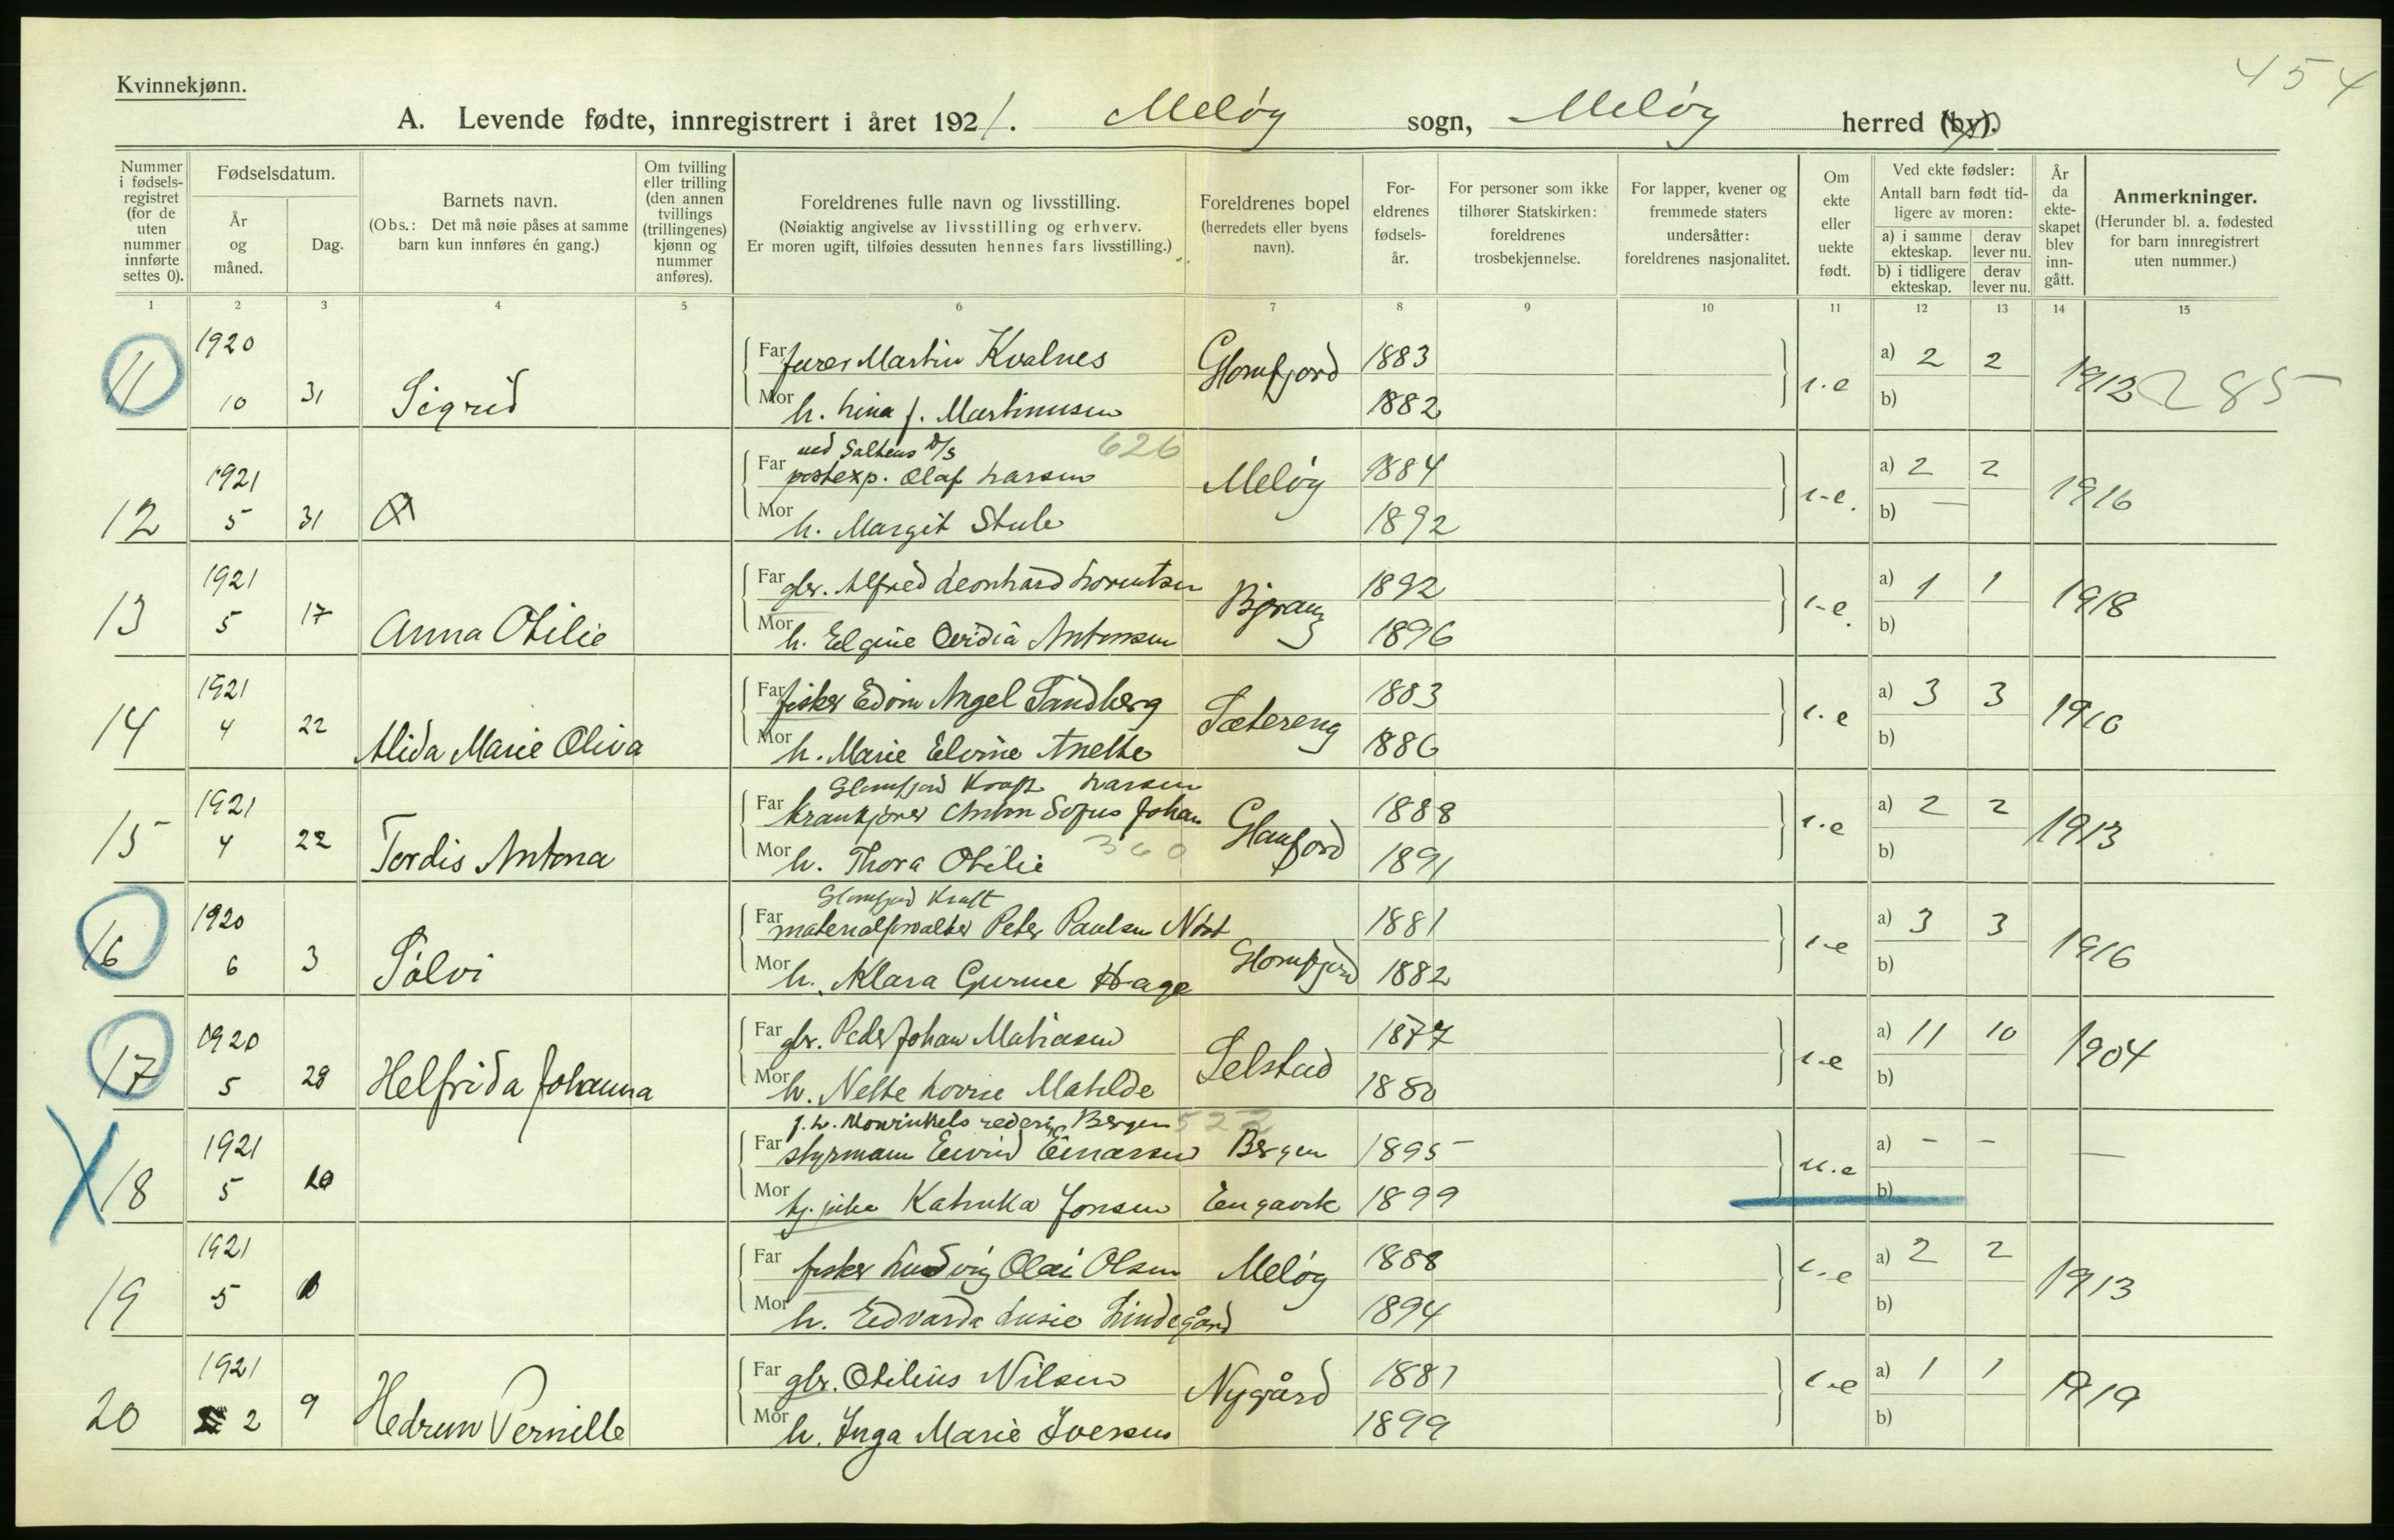 454
Kvinnekjønn.
A. Levende fødte, innregistrert i året 1921. Meløy sogn, Meløy herred (by).
Nummer i fødselsregistret (for de uten nummer innførte settes 0).
Fødselsdatum.
År og måned.
Dag.
Barnets navn.
(Obs.: Det må nøie påses at samme barn kun innføres én gang.)
Om tvilling eller trilling (den annen tvillings (trillingenes) kjønn og nummer anføres).
Foreldrenes fulle navn og livsstilling.
(Nøiaktig angivelse av livsstilling og erhverv.
Er moren ugift, tilføies dessuten hennes fars livsstilling.)
Foreldrenes bopel (herredets eller byens navn).
Foreldrenes fødselsår.
For personer som ikke tilhører Statskirken: foreldrenes trosbekjennelse.
For lapper, kvener og fremmede staters undersåtter: foreldrenes nasjonalitet.
Om ekte eller uekte født.
Ved ekte fødsler:
Antall barn født tidligere av moren:
a) i samme ekteskap. derav lever nu.
b) i tidligere ekteskap. derav lever nu.
År da ekteskapet blev inngått.
Anmerkninger.
(Herunder bl. a. fødested for barn innregistrert uten nummer.)
1 2 3 4 5 6 7 8 9 10 11 12 13 14 15
11 1920 10 31 Sigrid
Far Martin Kvalnes Glomfjord 1883
Mor h. Lina J. Martinusen 1882
a) 2 2
b)
1912 285
12 1921 5 31
ved Saltens D/S 626
Far postexp. Olaf Larsen Meløy 1884
Mor h. Margit Stule 1892
a) 2 2
b) —
1916
13 1921 5 17 Anna Otilie
Far gbr. Alfred Leonhard Lorentsen 1892
Mor h. Elgine Ovidia Antonsen 1896
a) 1 1
b)
1918
14 1921 4 22 Alida Marie Oliva
Far fisker Edom Angel Sandberg Sætereng 1883
Mor h. Marie Elvine Anette 1886
a) 3 3
b)
1910
15 1921 4 22 Tordis Antona
Glomfjord Kraft Larsen
Far krankjører Anton Sofus Johan Glomfjord 1888
Mor h. Thora Otilie 360 1891
a) 2 2
b)
1913
16 1920 6 3 Sølvi
Glomfjord Kraft
Far materialforvalter Peter Paulsen Glomfjord 1881
Mor h. Klara Hage 1882
a) 3 3
b)
1916
17 1920 5 28 Helfrida Johanna
Far gbr. Peder Johan Mathiasen Selstad 1877
Mor h. Nelte Lovise Matilde 1880
a) 11 10
b)
1904
J. L. Mowinkels rederi, Bergen 522
X 18 1921 5 10
Far styrmann Eivind Einarsen Bergen 1895
Mor Katinka Jonsen Engavik 1899
u.e
a) – –
b)
—
19 1921 5
Far fisker Ludvig Olai Olsen Meløy 1888
Mor h. Edvarda Lusie Lindegård 1894
a) 2 2
b)
1913
20 1921 2 9 Hedrun Pernille
Far gbr. Otilius Nilsen Nygård 1881
Mor h. Inga Marie Iversen 1899
a) 1 1
b)
1919